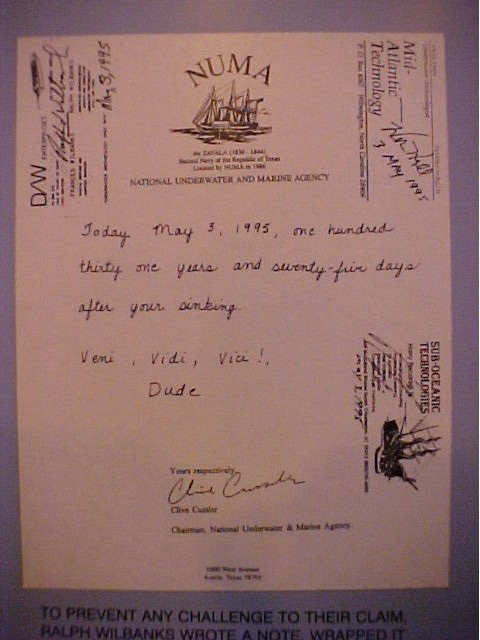 NUMA
the ZAVALA (1836 - 1844)
Second Navy of the Republic of Texas
Located by NUMA in 1986
NATIONAL UNDERWATER AND MARINE AGENCY
DAW ENTERPRISES
RALPH WILBANKS
May 3, 1995
Mid-
Atlantic
Technology
P.O. Box
Wilmington, North Carolina
3 MAY 1995
Today May 3, 1995, one hundred
thirty one years and seventy-five days
after your sinking.
Veni, Vidi, Vici!,
Dude
SUB-OCEANIC
TECHNOLOGIES
May 3, 1995
Yours respectively,
Clive Cussler
Clive Cussler
Chairman, National Underwater & Marine Agency
West Avenue
Austin, Texas 78701
TO PREVENT ANY CHALLENGE TO THEIR CLAIM,
RALPH WILBANKS WROTE A NOTE, WRAPPED IT